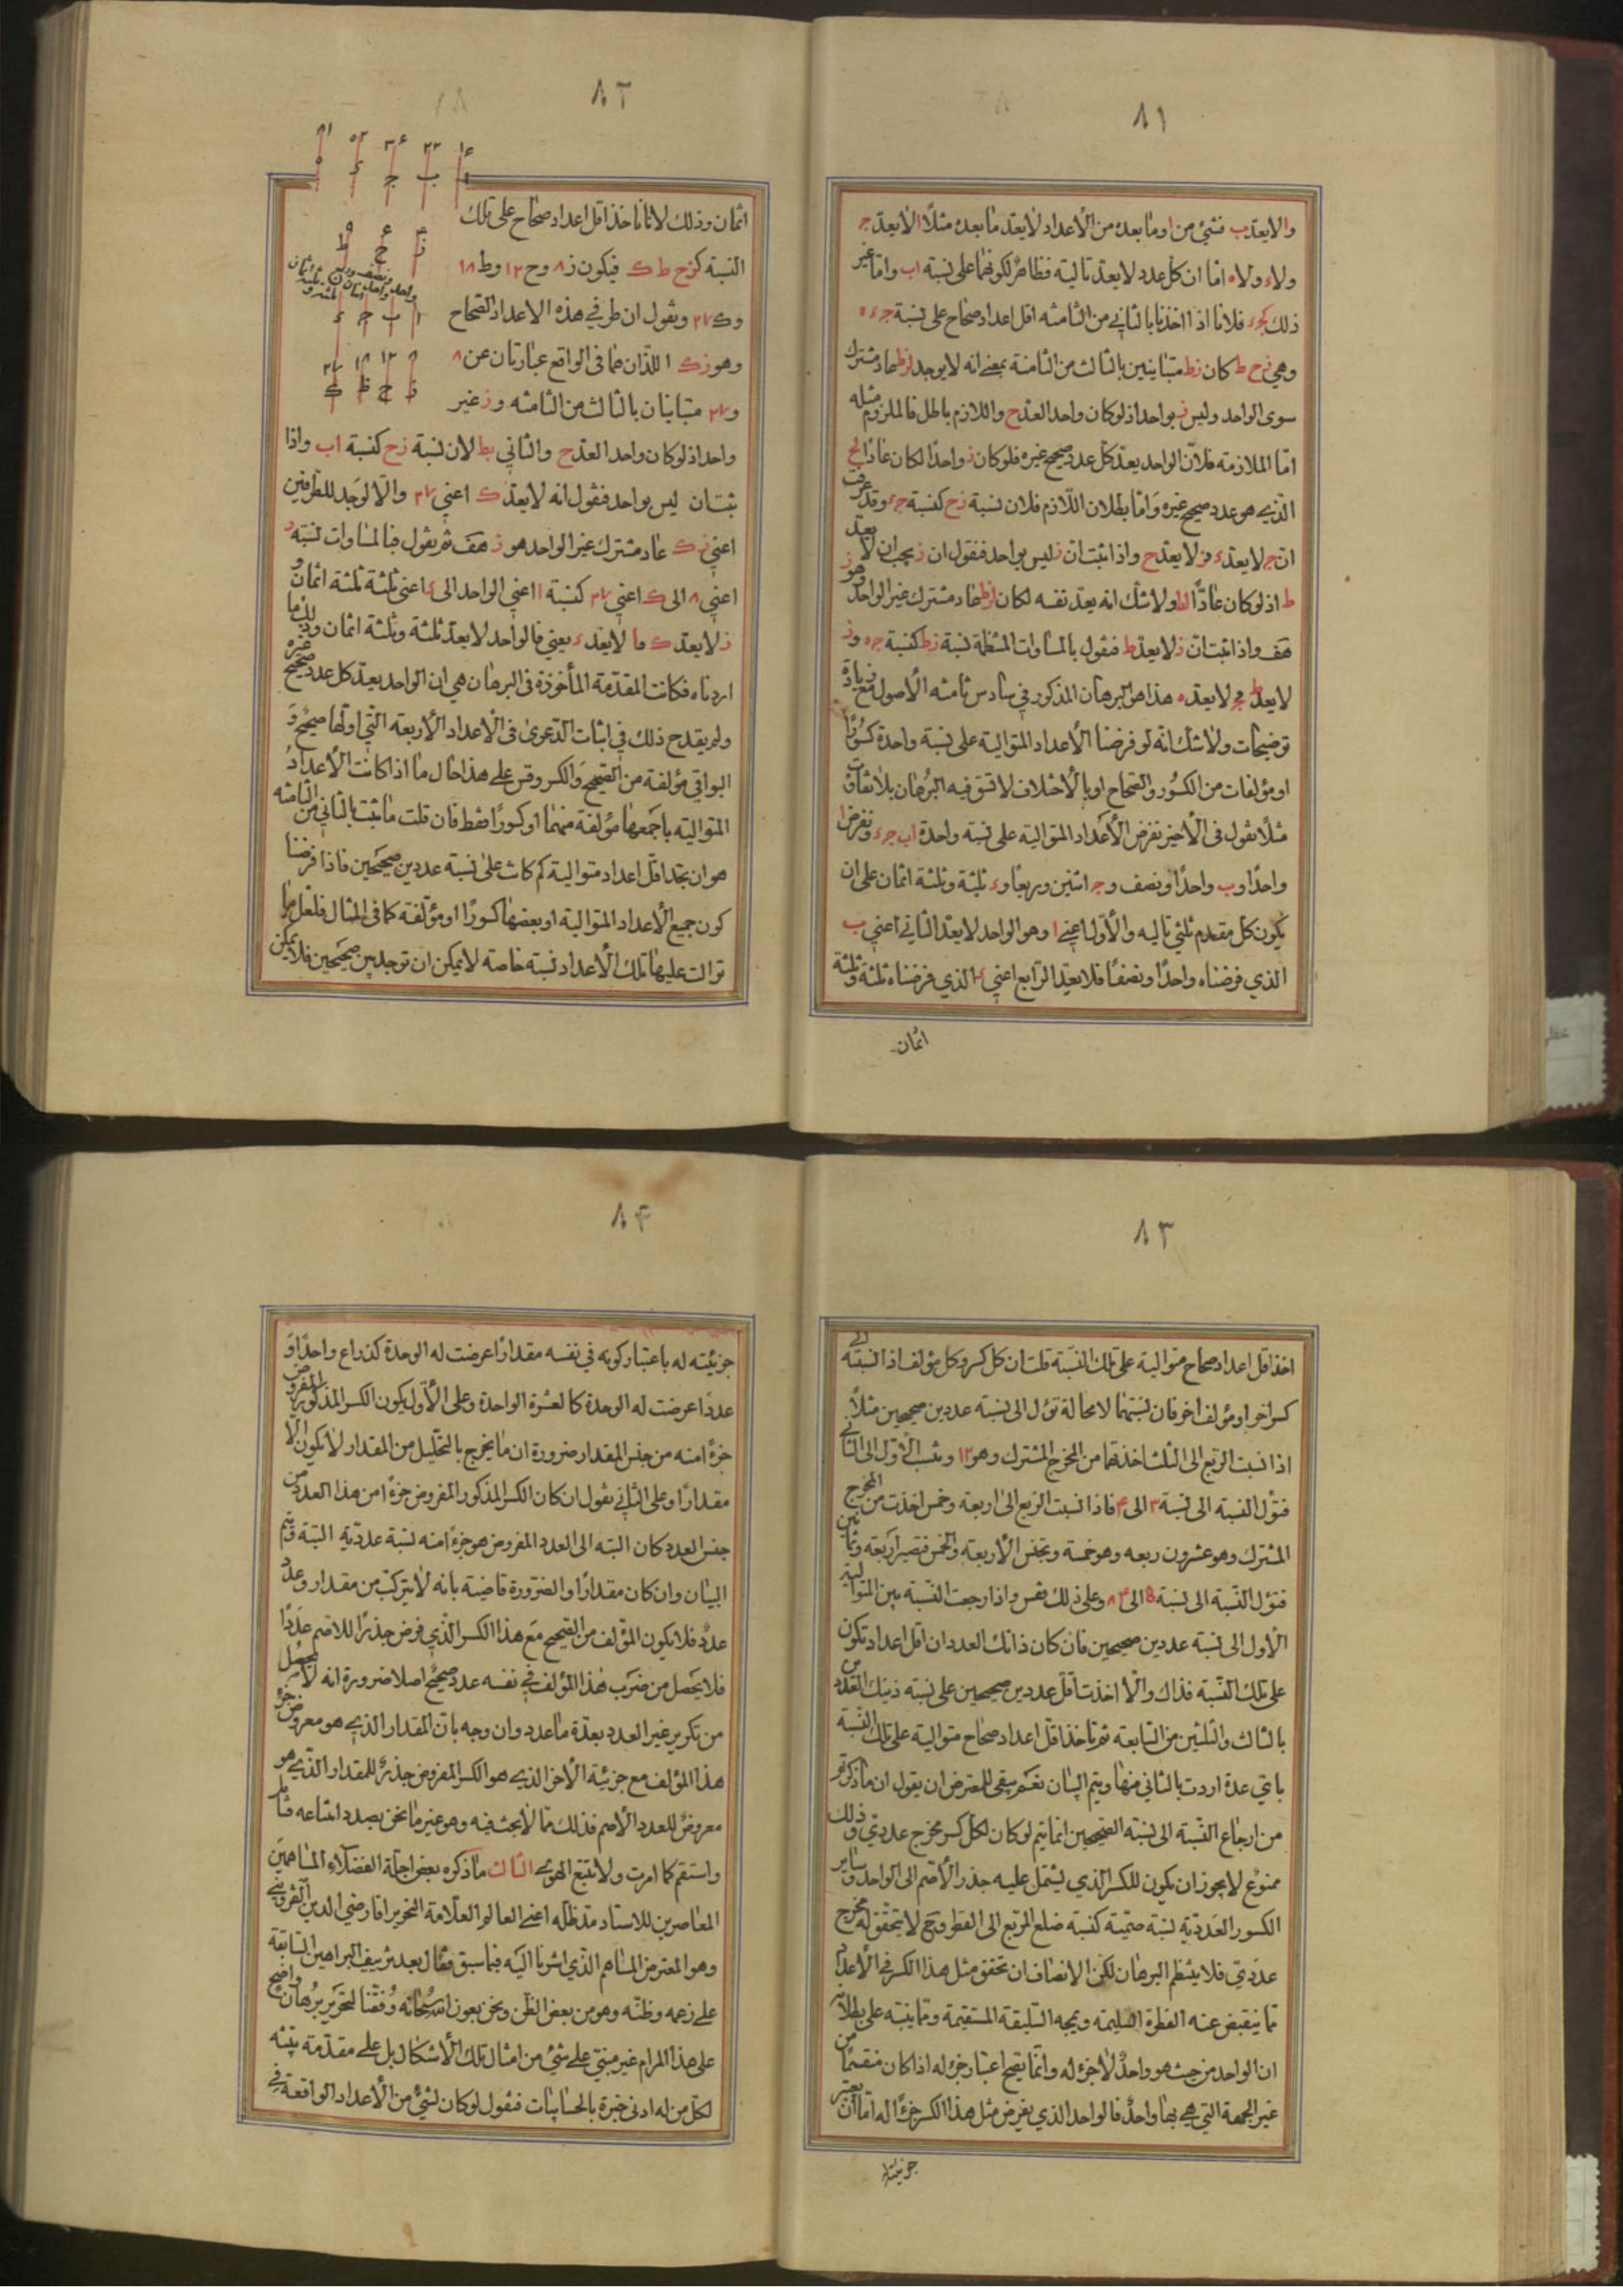 ٨١
والا لايعد ب فشئ من ا وما بعده من الأعداد لايعد ما بعده مثلًا ا لايعد ج
ولاء ولاه اما ان كل عدد لايعد تاليه فظاهر لكونهما على نسبة اب واما غير
ذلك كجء فلانا اذا اخذنا بالثاني من الثامنه اقل اعداد صحاح على نسبة ج ء ه
وهي زح ط كان زط متباينين بالثالث من الثامنة بمعنى انه لايوجد لزط عاد مشترك
سوى الواحد وليس ز بواحد اذ لو كان واحد العد ح واللازم باطل فالملزوم مثله
اما الملازمه فلان الواحد يعد كل عدد صحيح غيره فلو كان ز واحدًا لكان عادًا لح
الذي هو عدد صحيح غيره واما بطلان اللازم فلان نسبة زح كنسبة جء وقد عرفت
ان ج لايعد ء فز لايعد ح واذا ثبت ان ز ليس بواحد فنقول ان ز يجب ان لا يعد
ط اذ لو كان عادًّا لط ولاشك انه يعد نفسه لكان لزط عاد مشترك غير الواحد وهو ز
هف واذا ثبت ان ز لايعد ط فنقول بالمساوات المنتظمة نسبة زط كنسبة جه وز
لايعد ط فج لايعد ه هذا هو البرهان المذكور في سادس ثامنه الأصول مع زيادة
توضيحات ولاشك انه لو فرضنا الأعداد المتوالية على نسبة واحدة كسورًا
او مؤلفات من الكسور والصحاح او بالأختلاف لاتسق فيه البرهان بلاتفاوت
مثلًا نقول في الأخير نفرض الأعداد المتوالية على نسبة واحدة اب جء ونفرض ا
واحدًا وب واحدًا ونصف وج اثنين وربعًا وء ثلثة وثلثة اثمان على ان
يكون كل مقدم ثلثي تاليه والأول اعني ا وهو الواحد لايعد الثاني اعني ب
الذي فرضناه واحدًا ونصفًا فلا يعد الرابع اعني ء الذي فرضناه ثلثة وثلثة
اثمان
٨٢
اثمان وذلك لانا ناخذ اقل اعداد صحاح على تلك
النسبة كزح ط ك فيكون ز ٨ وح ١٢ وط ١٨
وك ٢٧ ونقول ان طرفي هذه الاعداد الصحاح
وهو زك اللذان هما في الواقع عبارتان عن ٨
و٢٧ متباينان بالثالث من الثامنه وز غير
واحد اذ لو كان واحد العد ح والثاني بط لان نسبة زح كنسبة اب واذا
ثبت ان ليس بواحد فنقول انه لايعد ك اعني ٢٧ والا لوجد للطرفين
اعني زك عاد مشترك غير الواحد هو ز هف ثم نقول فبالمساوات نسبة ز
اعني ٨ الى ك اعني ٢٧ كنسبة ا اعني الواحد الى ء اعني ثلثة وثلثة اثمان
ز لايعد ك فا لايعد ء يعني فالواحد لايعد ثلثة وثلثة اثمان وذلك ما
اردناه فكانت المقدمة المأخوذة في البرهان هي ان الواحد يعد كل عدد صحيح غيره
ولم يقدح ذلك في اثبات الدعوى في الأعداد الأربعة التي اولها صحيح و
البواقي مؤلفة من الصحيح والكسر وقس على هذا حال ما اذا كانت الأعداد
المتوالية باجمعها مؤلفة منهما او كسورًا فقط فان قلت ما ثبت بالثاني من الثامنه
هو ان نجد اقل اعداد متوالية كم كانت على نسبة عددين صحيحين فاذا فرضنا
كون جميع الأعداد المتوالية او بعضها كسورًا او مؤلفة كما في المثال فلعل ما
توالت عليها تلك الأعداد نسبة خاصة لايمكن ان توجد بين صحيحين فلا يمكن
٨٣
اخذ اقل اعداد صحاح متوالية على تلك النسبة قلت ان كل كسر وكل مؤلف اذا نسبته الى
كسر اخر او مؤلف اخر فان نسبتهما لامحالة تؤل الى نسبة عددين صحيحين مثلًا
اذا نسبت الربع الى الثلث اخذتهما من المخرج المشترك وهو ١٢ ونسبت الأول الى الثاني
فتؤل النسبة الى نسبة ٣ الى ۴ فاذا نسبت الربع الى اربعة وخمس اخذت من المخرج
المشترك وهو عشرون ربعه وهو خمسة وتجنس الأربعة والخمس فتصير اربعة وثمانين
فتؤل النسبة الى نسبة 5 الى ٨۴ وعلى ذلك فقس واذا رجعت النسبة بين المتوالية
الأول الى نسبة عددين صحيحين فان كان ذانك العددان اقل اعداد تكون
على تلك النسبة فذاك والا اخذت اقل عددين صحيحين على نسبة ذينك العددين
بالثالث والثلثين من السابعة ثم تاخذ اقل اعداد صحاح متوالية على تلك النسبة
باي عدة اردت بالثاني منها ويتم البيان نعم يبقى للمعترض ان يقول ان ما ذكرتم
من ارجاع النسبة الى نسبة الصحيحين انما يتم لو كان لكل كسر مخرج عددي وذلك
ممنوع لايجوز ان يكون للكسر الذي يشتمل عليه جذر الأصم الى الواحد وساير
الكسور العددية نسبة صمية كنسبة ضلع المربع الى القطر وح لايتحقق له مخرج
عددي فلا ينتظم البرهان لكن الانصاف ان تحقق مثل هذا الكسر في الأعداد
مما ينقبض عنه الفطرة السليمة ويمجه السليقة المستقيمة ومما ينبه على بطلانه
ان الواحد من حيث هو واحد لاجزء له وانما يصح اعتبار جزء له اذا كان منقسمًا من
غير الجهة التي هي بها واحد فالواحد الذي يفرض مثل هذا الكسر جزءًا له اما ان يعتبر
جزئيته
٨۴
جزئيته له باعتبار كونه في نفسه مقدارًا عرضت له الوحدة كذراع واحد او
عددًا عرضت له الوحدة كالعشرة الواحدة وعلى الأول يكون الكسر المذكور المفروض
جزءًا منه من جنس المقدار ضرورة ان ما يخرج بالتحليل من المقدار لايكون الا
مقدارًا وعلى الثاني نقول ان كان الكسر المذكور المفروض جزءًا من هذا العدد من
جنس العدد كان البته الى العدد المفروض هو جزءًا منه نسبة عددية البتة فيتم
البيان وان كان مقدارًا والضرورة قاضية بانه لايتركب من مقدار وعدد
عدد فلا يكون المؤلف من الصحيح مع هذا الكسر الذي فرض جذرًا للاصم عددًا
فلا يحصل من ضرب هذا المؤلف في نفسه عدد صحيح اصلا ضرورة انه لايحصل
من تكرير غير العدد بعدة ما عدد وان وجه بان المقدار الذي هو معروض جزء
هذا المؤلف مع جزئية الأخر الذي هو الكسر المفروض جذر للمقدار الذي هو
معروض للعدد الأصم فذلك مما لايبحث فيه وهو غير ما نحن بصدد امتناعه فتأمل
واستقم كما امرت ولا تتبع الهوى الثالث ما ذكره بعض اجلة الفضلاء المساهمين
المعاصرين للاستاد مد ظله اعني العالم العلامة النحرير اقا رضي الدين القزويني
وهو المعترض المساهم الذي اشرنا اليه فيما سبق فقال بعد تزييف البراهين السابقة
على زعمه وظنه وهو من بعض الظن ونحن بعون الله سبحانه وفقنا لتحرير برهان واضح
على هذا المرام غير مبني على شئ من امثال تلك الأشكال بل على مقدمة بينه
لكل من له ادنى خبرة بالحسابيات فنقول لو كان لشئ من الأعداد الواقعة في